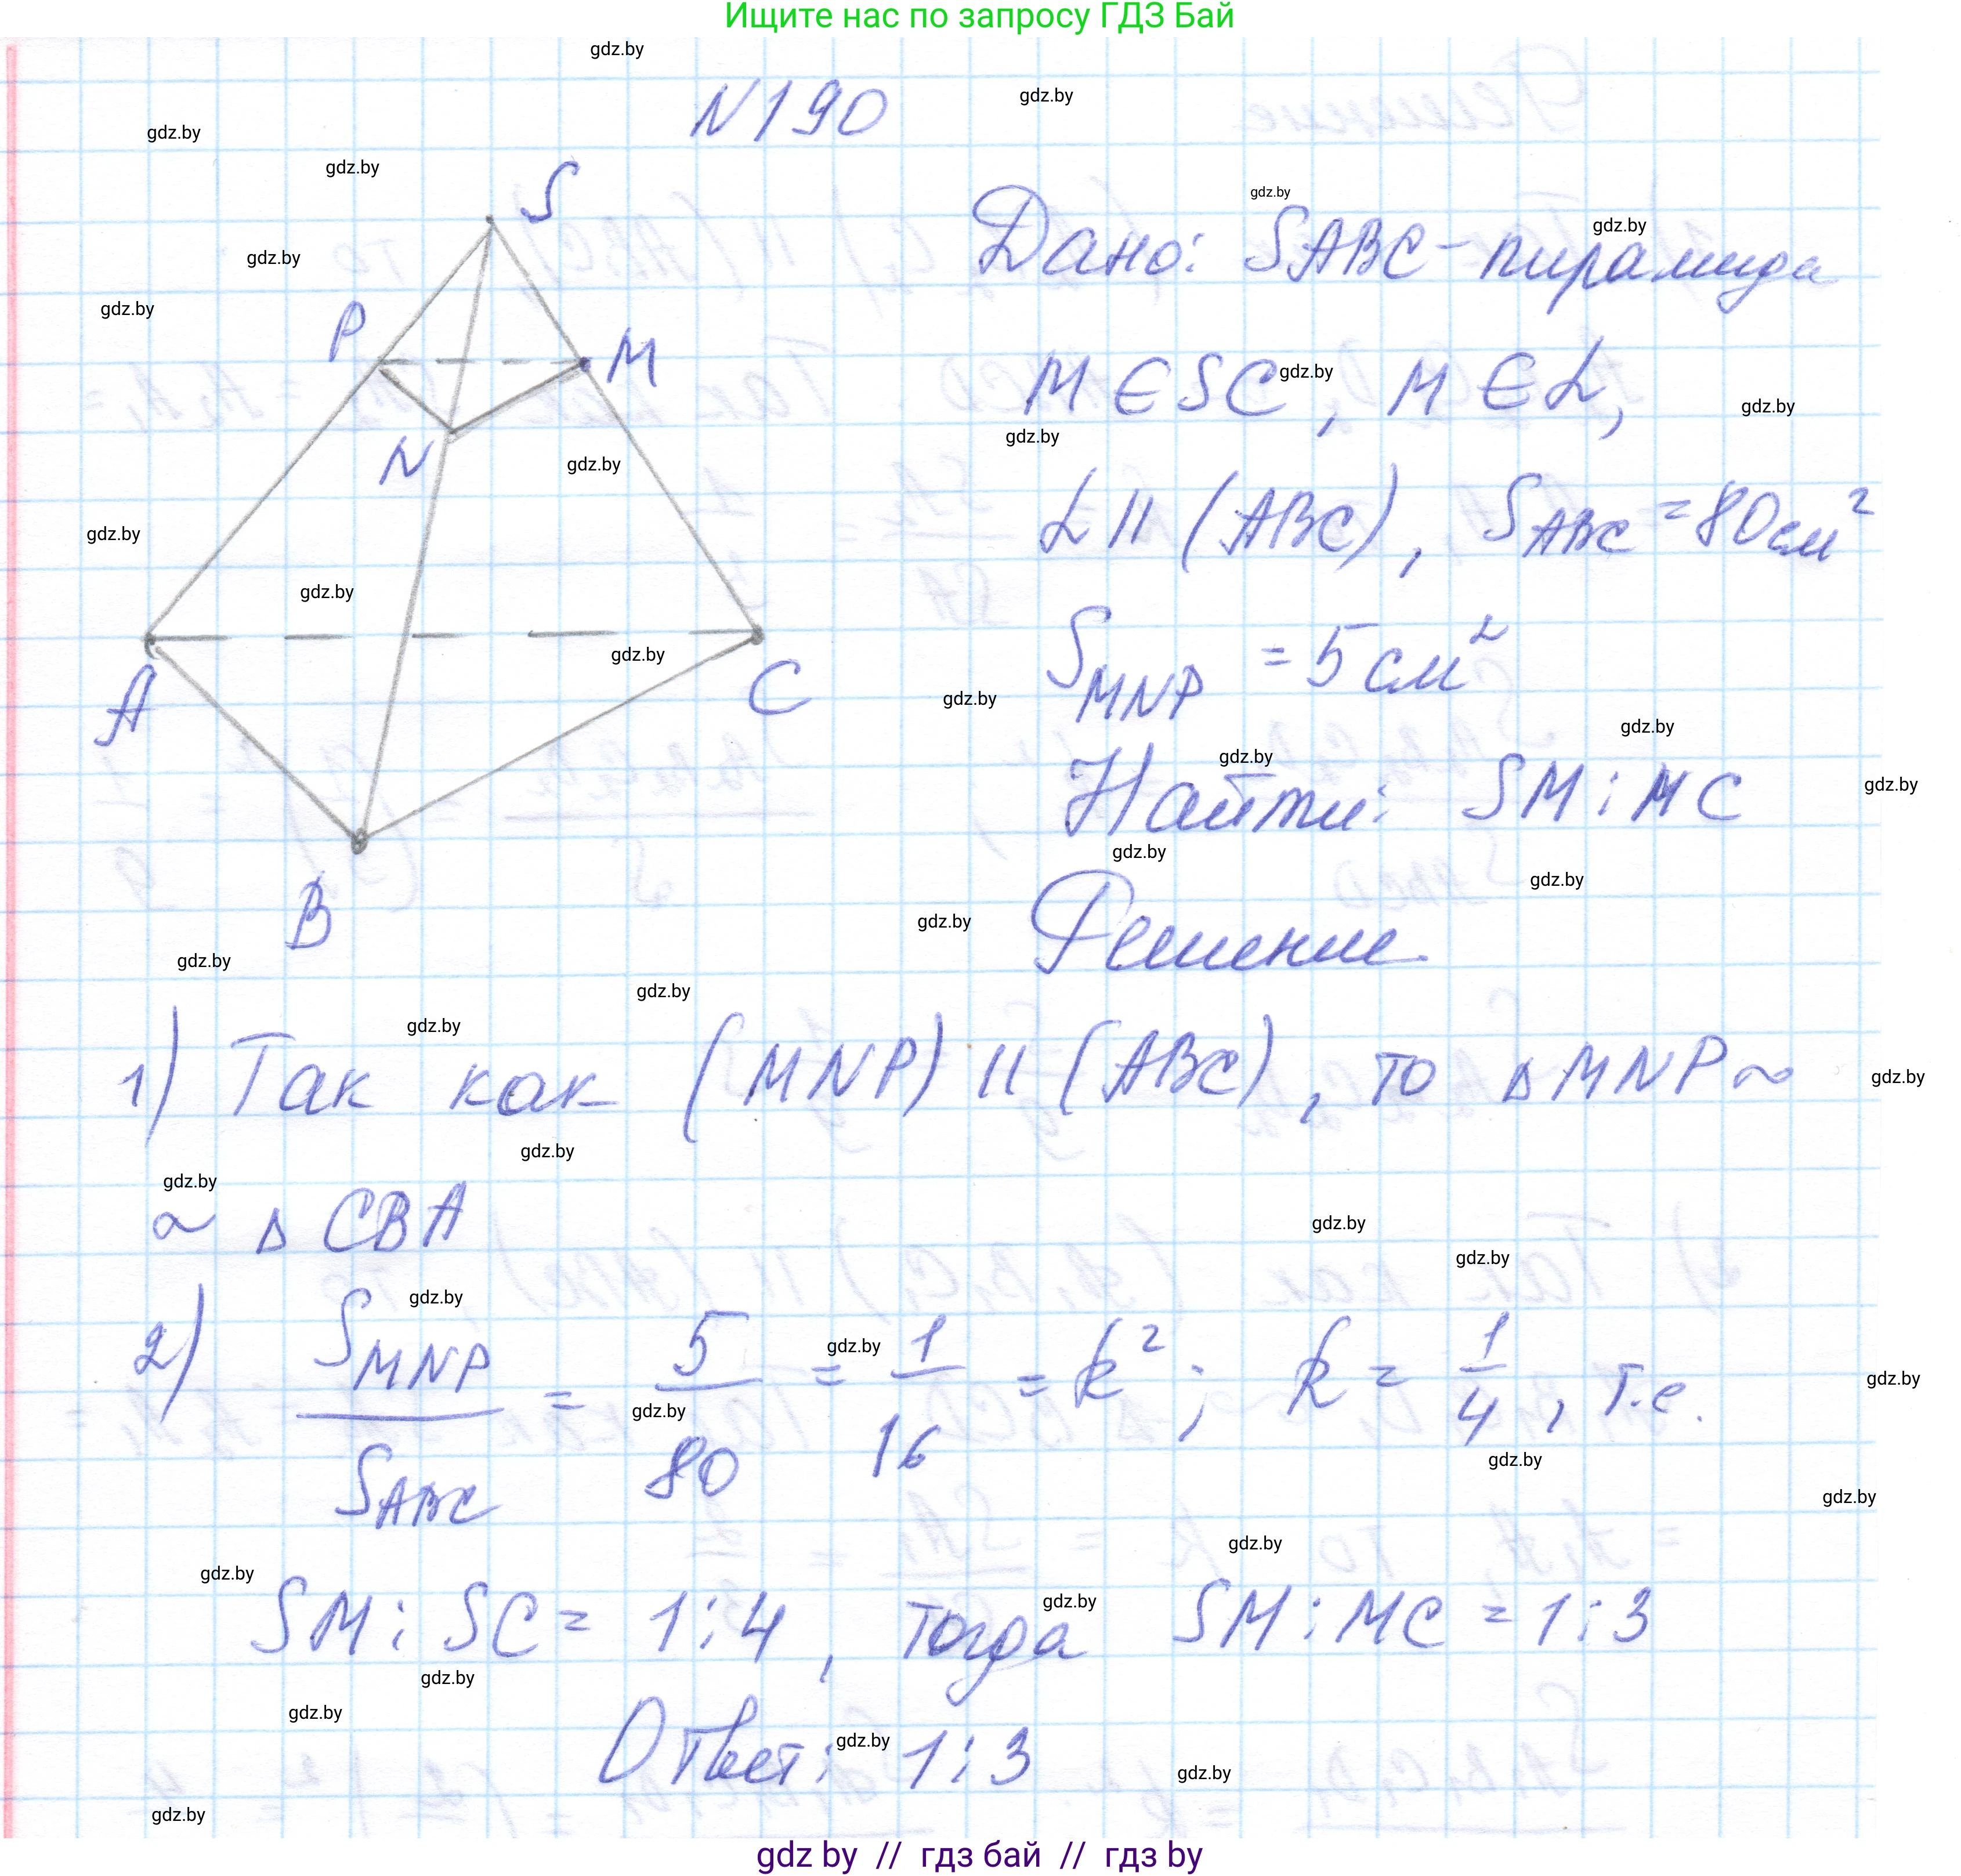 Ищите нас по запросу ГДЗ Бай
N190
S
P
M
N
A
C
B
Дано: SABC - пирамида
M ∈ SC, M ∈ α,
α || (ABC), S ABC = 80 см²
S MNP = 5 см²
Найти: SM : MC
Решение
1) Так как (MNP) || (ABC), то Δ MNP ~
~ Δ CBA
2) S MNP / S ABC = 5/80 = 1/16 = k²; k = 1/4, т.е.
SM : SC = 1:4, тогда SM : MC = 1:3
Ответ: 1:3
gdz by // гдз бай // гдз by